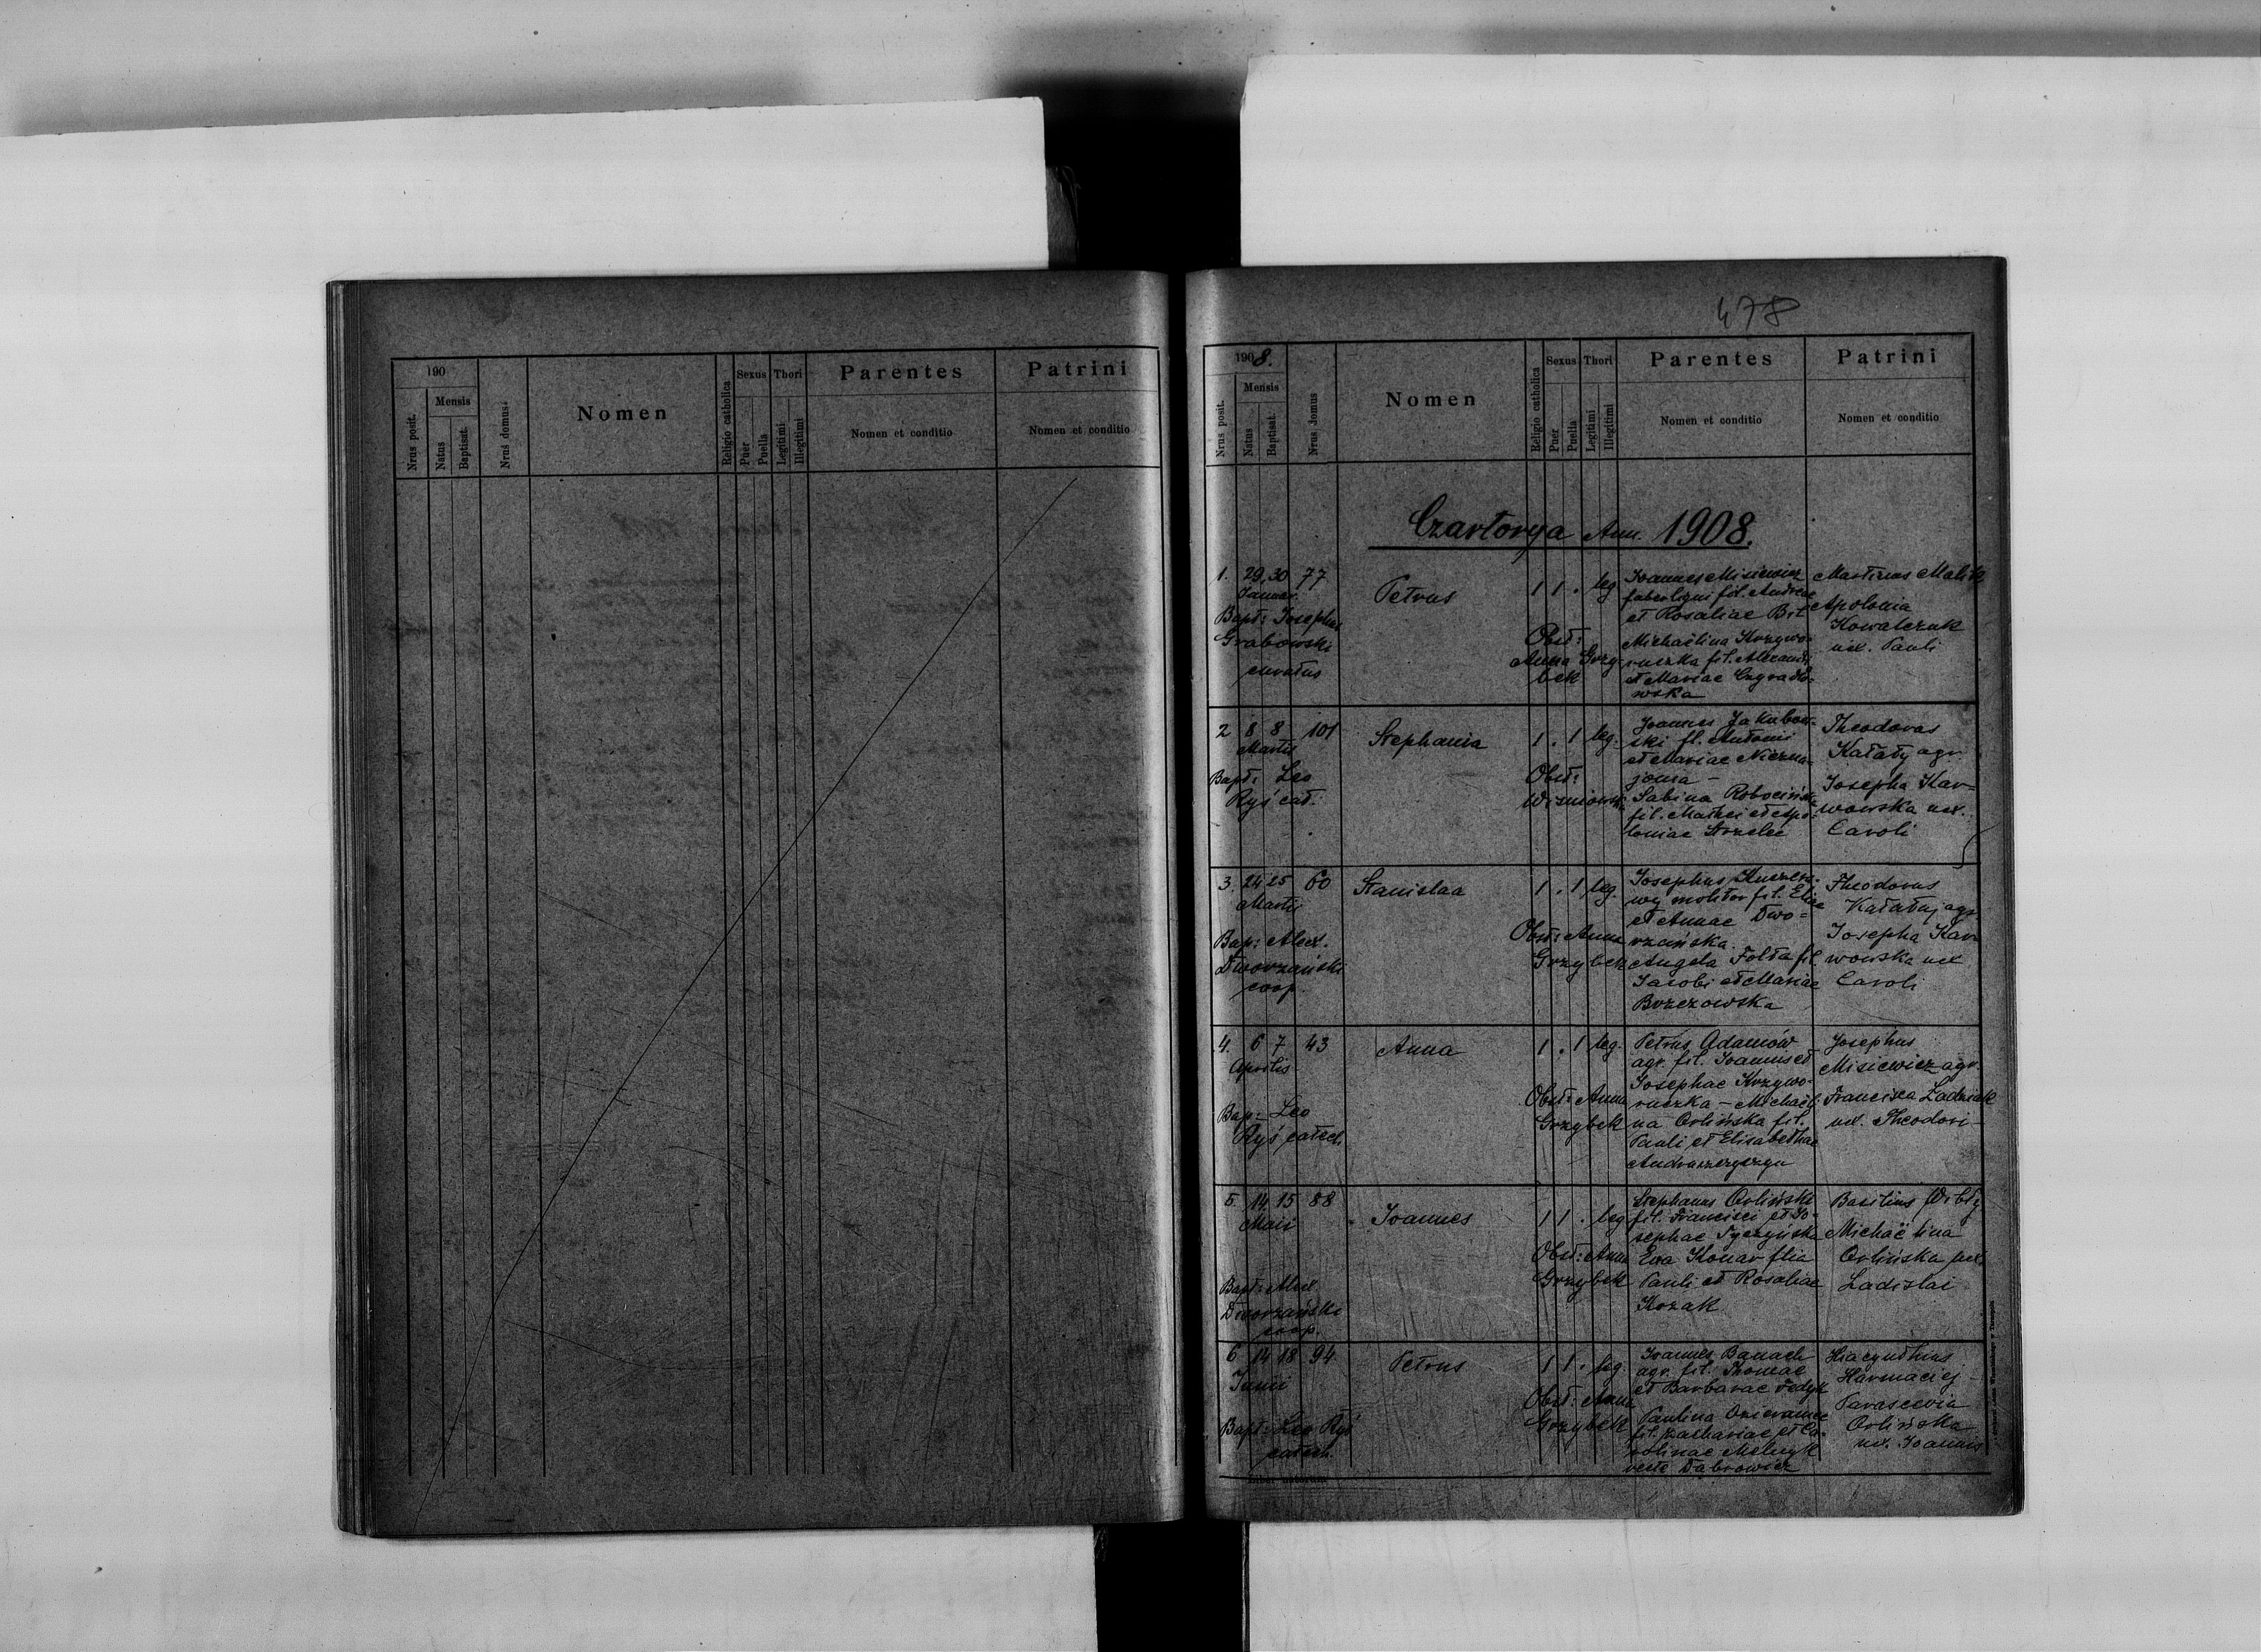 190
Nrus posit.
Mensis
Natus
Baptisat.
Nrus domus
Nomen
Religio catholica
Sexus
Puer
Puella
Thori
Legitimi
Illegitimi
Parentes
Nomen et conditio
Patrini
Nomen et conditio
478
1908.
Nrus posit.
Mensis
Natus
Baptisat.
Nrus domus
Nomen
Religio catholica
Sexus
Puer
Puella
Thori
Legitimi
Illegitimi
Parentes
Nomen et conditio
Patrini
Nomen et conditio
Czartorya Ann. 1908.
1. 29 30 77
Januar.
Bapt: Josephus
Grabowski
curatus
Petrus
1 1 . leg
Obst:
Anna Grzy-
bek
Joannes Misiewicz
faber ligni fil. Andreae
et Rosaliae Bit
Michaëlina Krzywo-
ruczka fil. Alexandri
et Mariae
wska
Martinus
Apolonia
Kowalczuk
ux. Pauli
2 8 8 101
Martii
Bapt: Leo
Ryś cat.
Stephania
1 . 1 leg.
Obst:
Joannes Jakubow-
ski fil. Antoni
et Mariae Niezna-
joma -
Sabina Robocińska
fil. Mathei et Apo-
loniae Strzelec
Theodorus
Kałatij agr.
Josepha Kar-
wowska ux.
Caroli
3. 24 25 60
Martii
Bap: Alex.
Dworzański
coop.
Stanislaa
1 . 1 leg.
Obst: Anna
Grzybek
Josephus
molitor fil. Eliae
et Annae Dwo-
rzańska.
Angela Fołta fil.
Jacobi et Mariae
Brzezowska
Theodorus
Kałatuj agr.
Josepha Kar-
wowska ux
Caroli
4. 6 7 43
Aprilis
Bap: Leo
Ryś catech.
Anna
1 . 1 leg.
Obst: Anna
Grzybek
Petrus Adamów
agr. fil. Joannis et
Josephae Krzywo-
ruczka - Michaëli-
na Orlińska fil.
Pauli et Elisabethae
Josephus
Misiewicz agr.
Francisca Zadniak
ux. Theodori -
5. 14 15 88
Maii
Bapt: Alex.
Dworzański
coop.
Joannes
1 1 . leg
Obst: Anna
Grzybek
Stephanus Orliński
fil. Francisci et Jo-
sephae Tyczyńska
Eva Konar filia
Pauli et Rosaliae
Kozak
Basilius
Michaëlina
Orlińska ux.
Ladislai
6 14 18 94
Junii
Bapt: Leo Ryś
catech.
Petrus
1 1 . leg.
Obst: Anna
Grzybek
Joannes Banach
agr. fil. Thomae
et Barbarae Fedyk
Paulina
fil. Zachariae et Ca-
rolinae Melnyk
recte Dąbrowicz
Hiacynthus
Harmaciej -
Parascevia
Orlińska
ux. Joannis